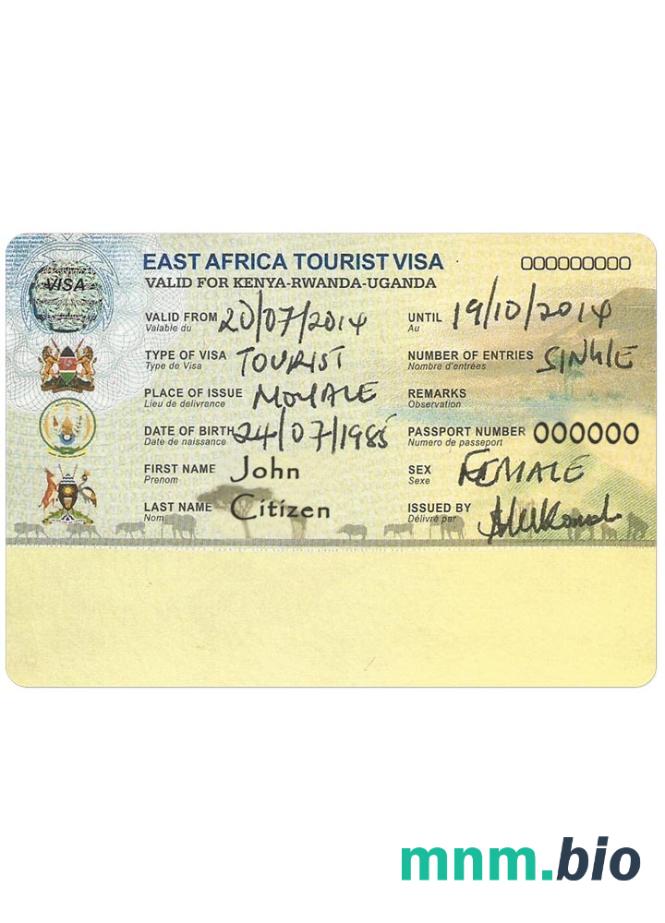 EAST AFRICA TOURIST VISA 000000000
VISA
VALID FOR KENYA-RWANDA-UGANDA
VALID FROM 20/07/2014 UNTIL 19/10/2014
Valable du Au
TYPE OF VISA TOURIST NUMBER OF ENTRIES SINGLE
Type de Visa Nombre d'entrées
PLACE OF ISSUE MOYALE REMARKS
Lieu de delivrance Observation
DATE OF BIRTH 24/07/1985 PASSPORT NUMBER 000000
Date de naissance Numero de passeport
FIRST NAME John SEX FEMALE
Prenom Sexe
LAST NAME Citizen ISSUED BY
Nom Délivré par
mnm.bio